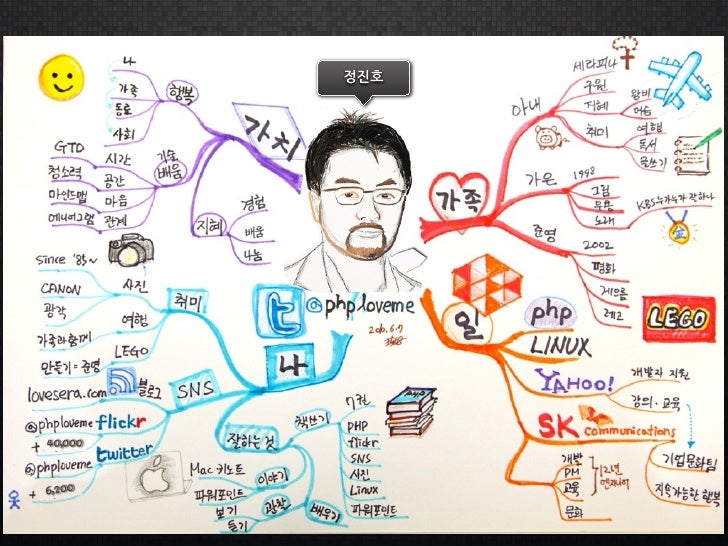 정진호
가치
행복
나
가족
동료
사회
기술
배움
시간
GTD
공간
청소력
마음
마인드맵
관계
에니어그램
지혜
경험
배움
나눔
가족
아내
세라피나
구원
지혜
왕비
마음
취미
여행
독서
글쓰기
가온
1998
그림
무용
노래
KBS 누가누가 잘하나
준영
2002
평화
게으름
레고
LEGO
@phploveme
2010.6.7
나
취미
사진
since '85~
CANON
광각
여행
가족과 함께
LEGO
만들기 = 준영
SNS
블로그
lovesera.com
flickr
@phploveme
+ 40,000
twitter
@phploveme
+ 6,200
잘하는 것
책쓰기
7권
PHP
flickr
SNS
사진
Linux
파워포인트
이야기
Mac 키노트
파워포인트
관찰
보기
듣기
배우기
일
php
LINUX
YAHOO!
개발자 지원
강의·교육
SK communications
기업문화팀
지속가능한 행복
개발
PM
교육
문화
12년
엔지니어